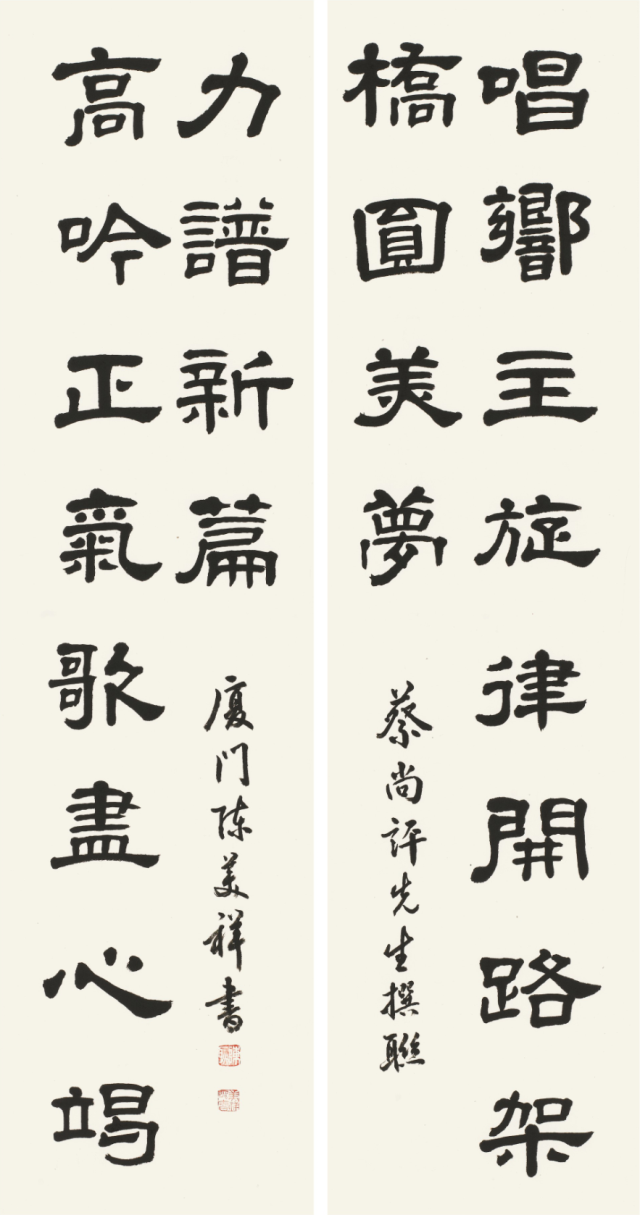 唱響主旋律開路架
橋圓美夢
蔡尚評先生撰聯
高吟正氣歌盡心竭
力譜新篇
廈门陈美祥書